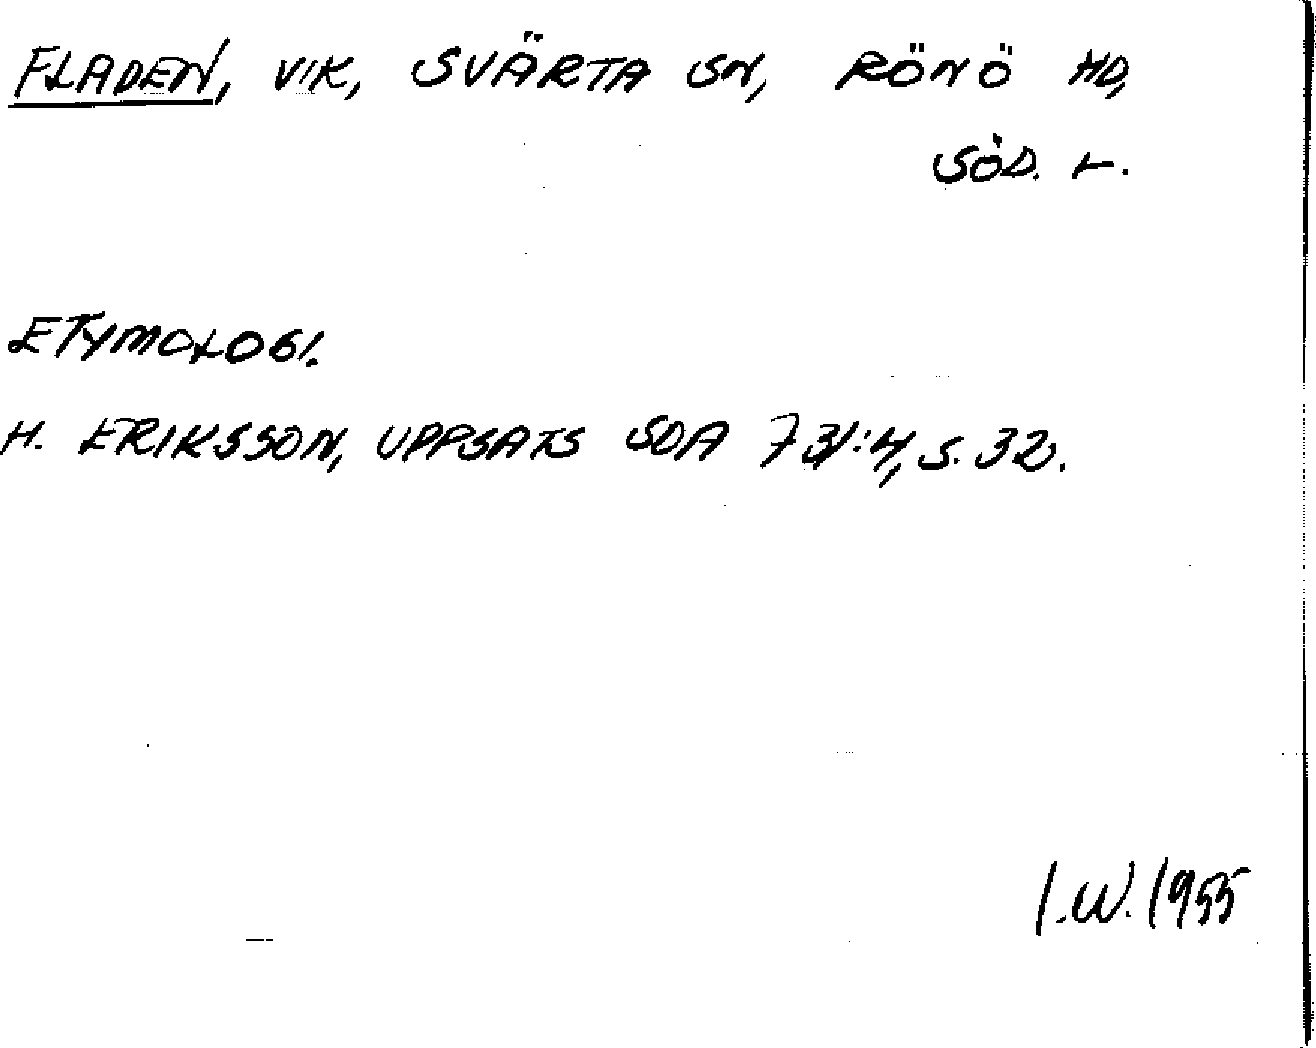 FLADEN, VIK, SVÄRTA SN, RÖNÖ HD,
SÖD. L.
ETYMOLOGI.
H. ERIKSSON, UPPSATS SOA 731:4, S. 32.
I.W. 1955